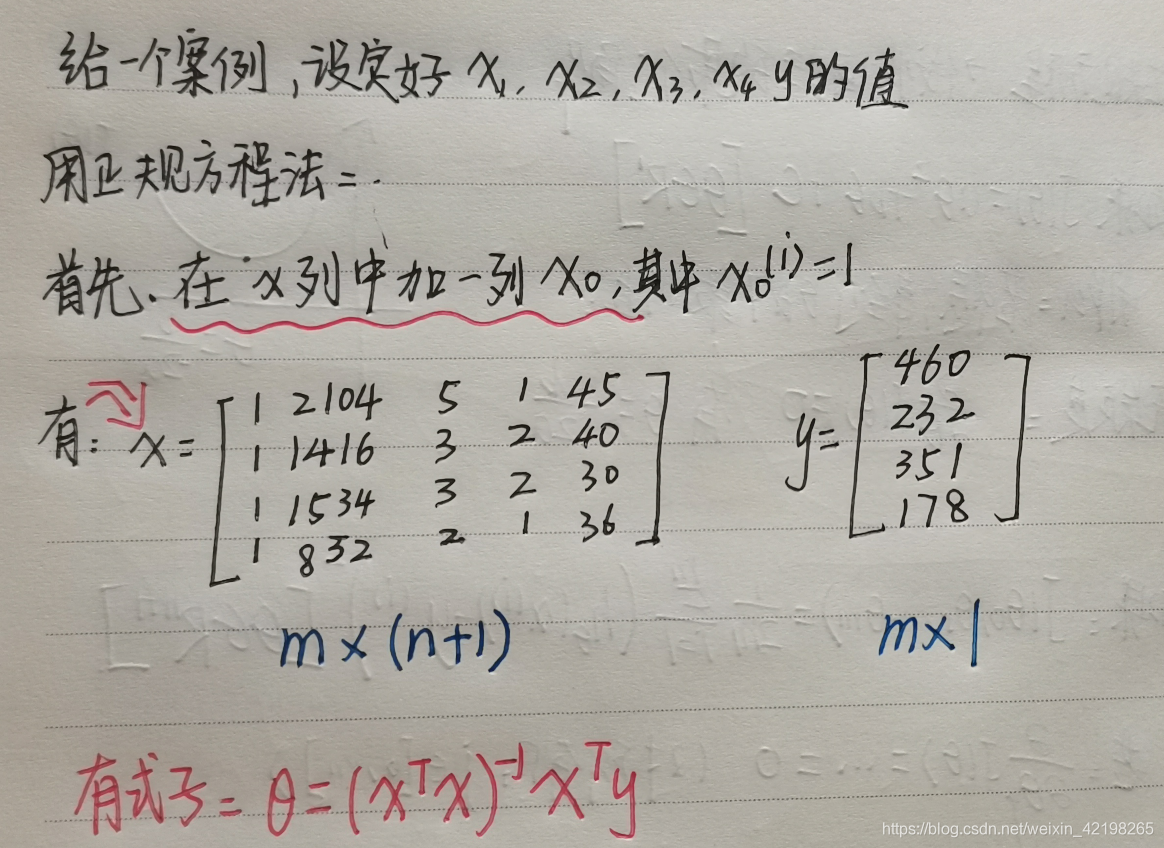 给一个案例,设定好 x₁, x₂, x₃, x₄ y的值
用正规方程法=.
首先.在x列中加一列 x₀,其中 x₀⁽ⁱ⁾=1
有: x= [ 1 2104 5 1 45 y= [ 460
1 1416 3 2 40 232
1 1534 3 2 30 351
1 832 2 1 36 ] 178 ]
m×(n+1) m×1
有式子= θ=(xᵀx)⁻¹xᵀy
https://blog.csdn.net/weixin_42198265